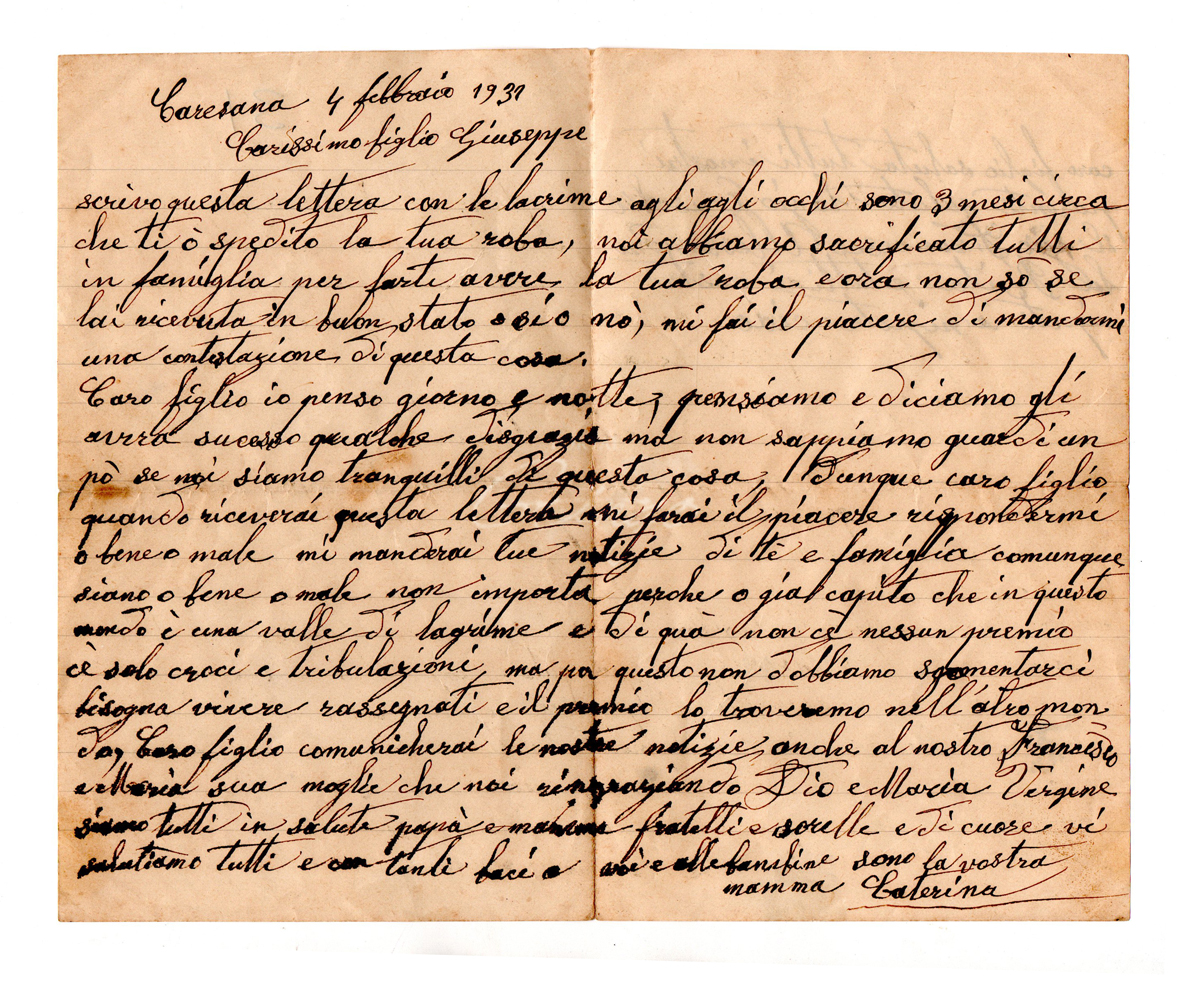 Caresana 4 febbraio 1931
Carissimo figlio Giuseppe
scrivo questa lettera con le lacrime agli agli occhi sono 3 mesi circa
che ti ò spedito la tua roba, noi abbiamo sacrificato tutti
in famiglia per farti avere la tua roba e ora non sò se
lai ricevuta in buon stato o sì o nò, mi fai il piacere di mandarmi
una contestazione di questa cosa.
Caro figlio io penso giorno e notte, pensiamo e diciamo gli
avrra sucesso qualche disgrazia ma non sappiamo guardi un
pò se noi siamo tranquilli di questa cosa, Dunque caro figlio
quando riceverai questa lettera mi farai il piacere rispondermi
o bene o male mi manderai tue notizie di te e famiglia comunque
siano o bene o male non importa perche o gia capito che in questo
mondo è una valle di lagrime e di quà non cè nessun premio
cè solo croci e tribulazioni, ma per questo non dobbiamo sgomentarci
bisogna vivere rassegnati e il premio lo troveremo nell'atro mon
do, Caro figlio comunicherai le nostre notizie anche al nostro Francesco
e Maria sua moglie che noi ringraziando Dio e Maria Vergine
siamo tutti in salute papà e mamma fratelli e sorelle e di cuore vi
salutiamo tutti e con tanti baci a voi e alle bambine sono la vostra
mamma Caterina